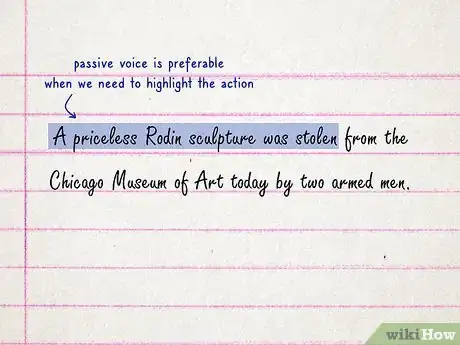 passive voice is preferable
when we need to highlight the action
A priceless Rodin sculpture was stolen from the
Chicago Museum of Art today by two armed men.
wikiHow